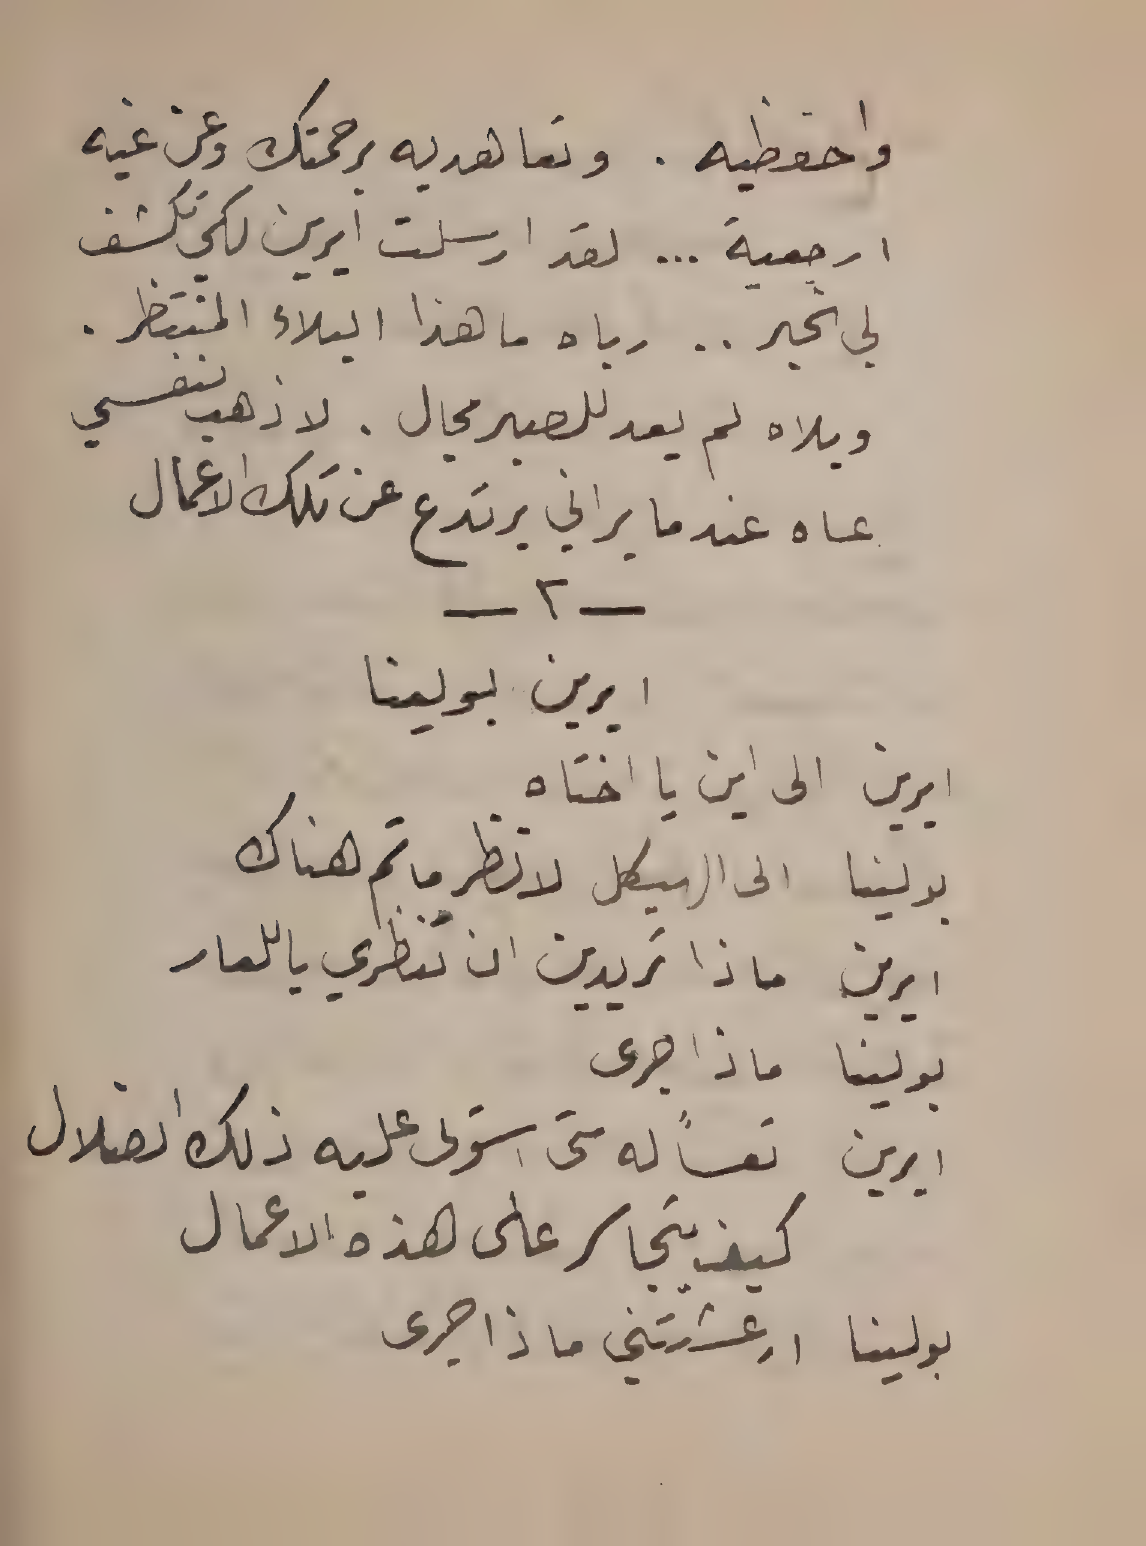 واحفظيه . وتعاهديه برحمتك وعن غيه
ارجعيه ... لقد ارسلت ايرين لكي تكشف
لي الخبر .. رباه ما هذا البلاء المنتظر .
ويلاه لم يعد للصبر مجال . لاذهب بنفسي
عساه عندما يراني يرتدع عن تلك الاعمال
— ٢ —
ايرين بولينا
ايرين الى اين يا اختاه
بولينا الى الهيكل لانظر ما تم هناك
ايرين ماذا تريدين ان تنظري ياللعار
بولينا ماذا جرى
ايرين تعساً له متى استولى عليه ذلك الضلال
كيف يتجاسر على هذه الاعمال
بولينا ارعشتني ماذا جرى